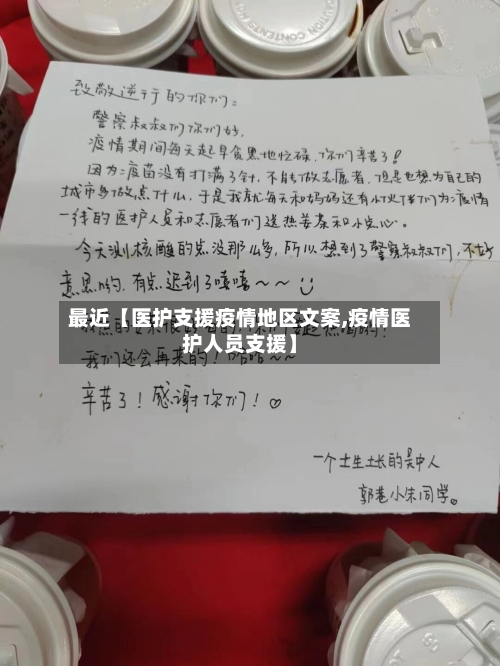 致敬逆行的你们：
警察叔叔们你们好，
疫情期间每天起早贪黑地忙碌，你们辛苦了！
因为疫苗没有打满3针，不能做志愿者，但是也想为自己的
城市多做点什么，于是我就每天和妈妈还有小伙伴们为疫情
一线的医护人员和志愿者们送热姜茶和小点心。
今天测核酸的点没那么多，所以想到了警察叔叔们，不好
意思哟，有点迟到了嘻嘻~~
最近【医护支援疫情地区文案,疫情医
护人员支援】
我们还会再来的！
辛苦了！感谢你们！♡
一个土生土长的吴中人
郭巷小朱同学。